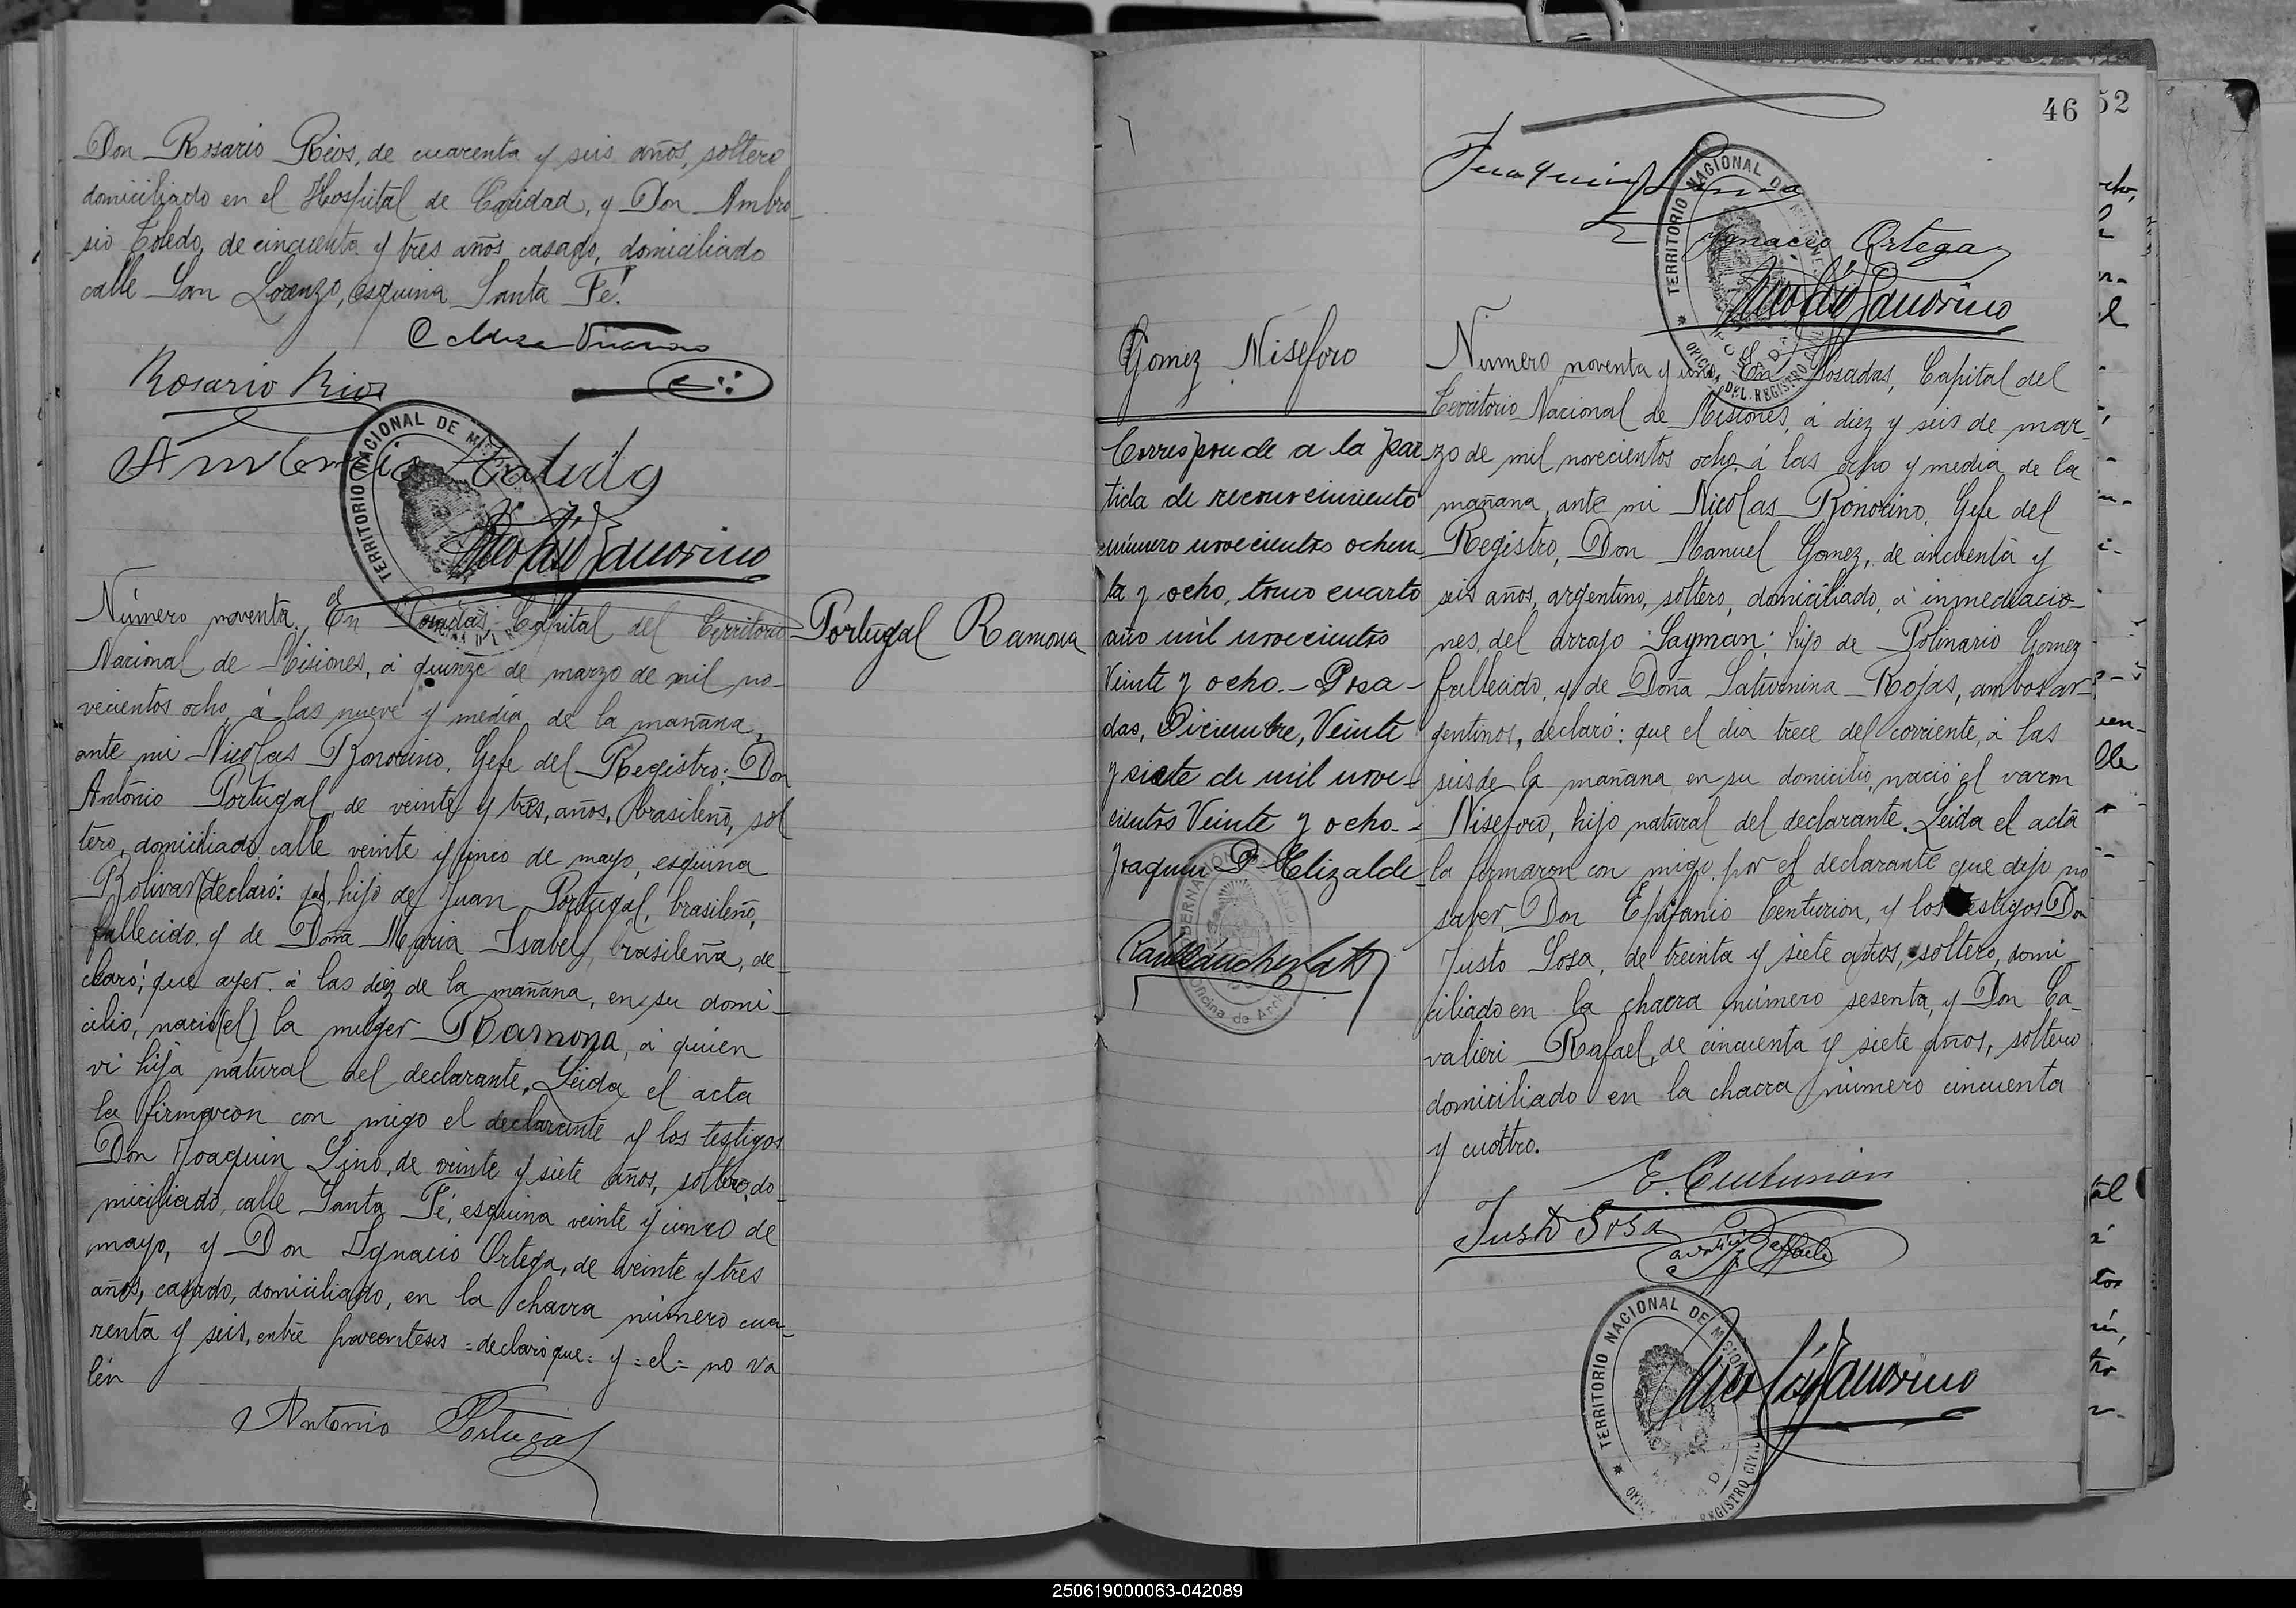 Don Rosario Rios, de cuarenta y seis años, soltero
domiciliado en el Hospital de Caridad, y Don Ambro-
sio Toledo, de cincuenta y tres años, casado, domiciliado
calle San Lorenzo, esquina Santa Fé.
Rosario Rios
TERRITORIO NACIONAL DE MI
Número noventa. En Posadas Capital del Territorio
Nacional de Misiones, á quinze de marzo de mil no-
vecientos ocho, á las nueve y media de la mañana,
ante mi Nicolas Bonorino, Gefe del Registro: Don
Antonio Portugal, de veinte y tres, años, brasileño, sol
tero, domiciliado calle veinte y cinco de mayo, esquina
Bolivar (declaró: que), hijo de Juan Portugal, brasileño,
fallecido y de Doña Maria Isabel, brasileña, de-
claró; que ayer á las diez de la mañana, en su domi-
cilio, nació (el) la muger Ramona, á quien
vi hija natural del declarante. Leida el acta
la firmaron con migo el declarante y los testigos
Don Joaquin Lino, de veinte y siete años, soltero, do-
miciliado, calle Santa Fé, esquina veinte y cinco de
mayo, y Don Ignacio Ortega, de veinte y tres
años, casado, domiciliado, en la chacra número cua-
renta y seis, entre parentesis =declaró que= y =el= no va
len
Antonio Portugal
Portugal Ramona
46
52
TERRITORIO NACIONAL DE MISIONES
OFICINA DEL REGISTRO CIVIL
Ygnacio Ortega
Nicolás Bonorino
Gomez Niseforo
Corresponde a la par
tida de reconocimiento
número novecientos ochen
ta y ocho, tomo cuarto
año mil novecientos
Veinte y ocho. - Posa-
das, Diciembre, Veinte
y siete de mil nove-
cientos Veinte y ocho. -
Joaquin P. Elizalde
Número noventa y uno. En Posadas, Capital del
Territorio Nacional de Misiones, á diez y seis de mar-
zo de mil novecientos ocho á las ocho y media de la
mañana, ante mi Nicolas Bonorino, Gefe del
Registro, Don Manuel Gomez, de cincuenta y
seis años, argentino, soltero, domiciliado, á inmediacio-
nes del arroyo Sayman; hijo de Polinario Gomez
fallecido, y de Doña Saturnina Rojas, ambos ar-
gentinos, declaró: que el dia trece del corriente, á las
seis de la mañana en su domicilio, nació el varon
Niseforo, hijo natural del declarante. Leida el acta
la firmaron con migo, por el declarante que dijo no
saber, Don Epifanio Centurion, y los testigos Don
Justo Sosa, de treinta y siete años, soltero, domi-
ciliado en la chacra número sesenta, y Don Ca-
valieri Rafael, de cincuenta y siete años, soltero
domiciliado en la chacra número cincuenta
y cuatro.
E. Centurión
Justo Sosa
TERRITORIO NACIONAL DE MISIONES
REGISTRO CIVIL
Nicolás Bonorino
250619000063-042089